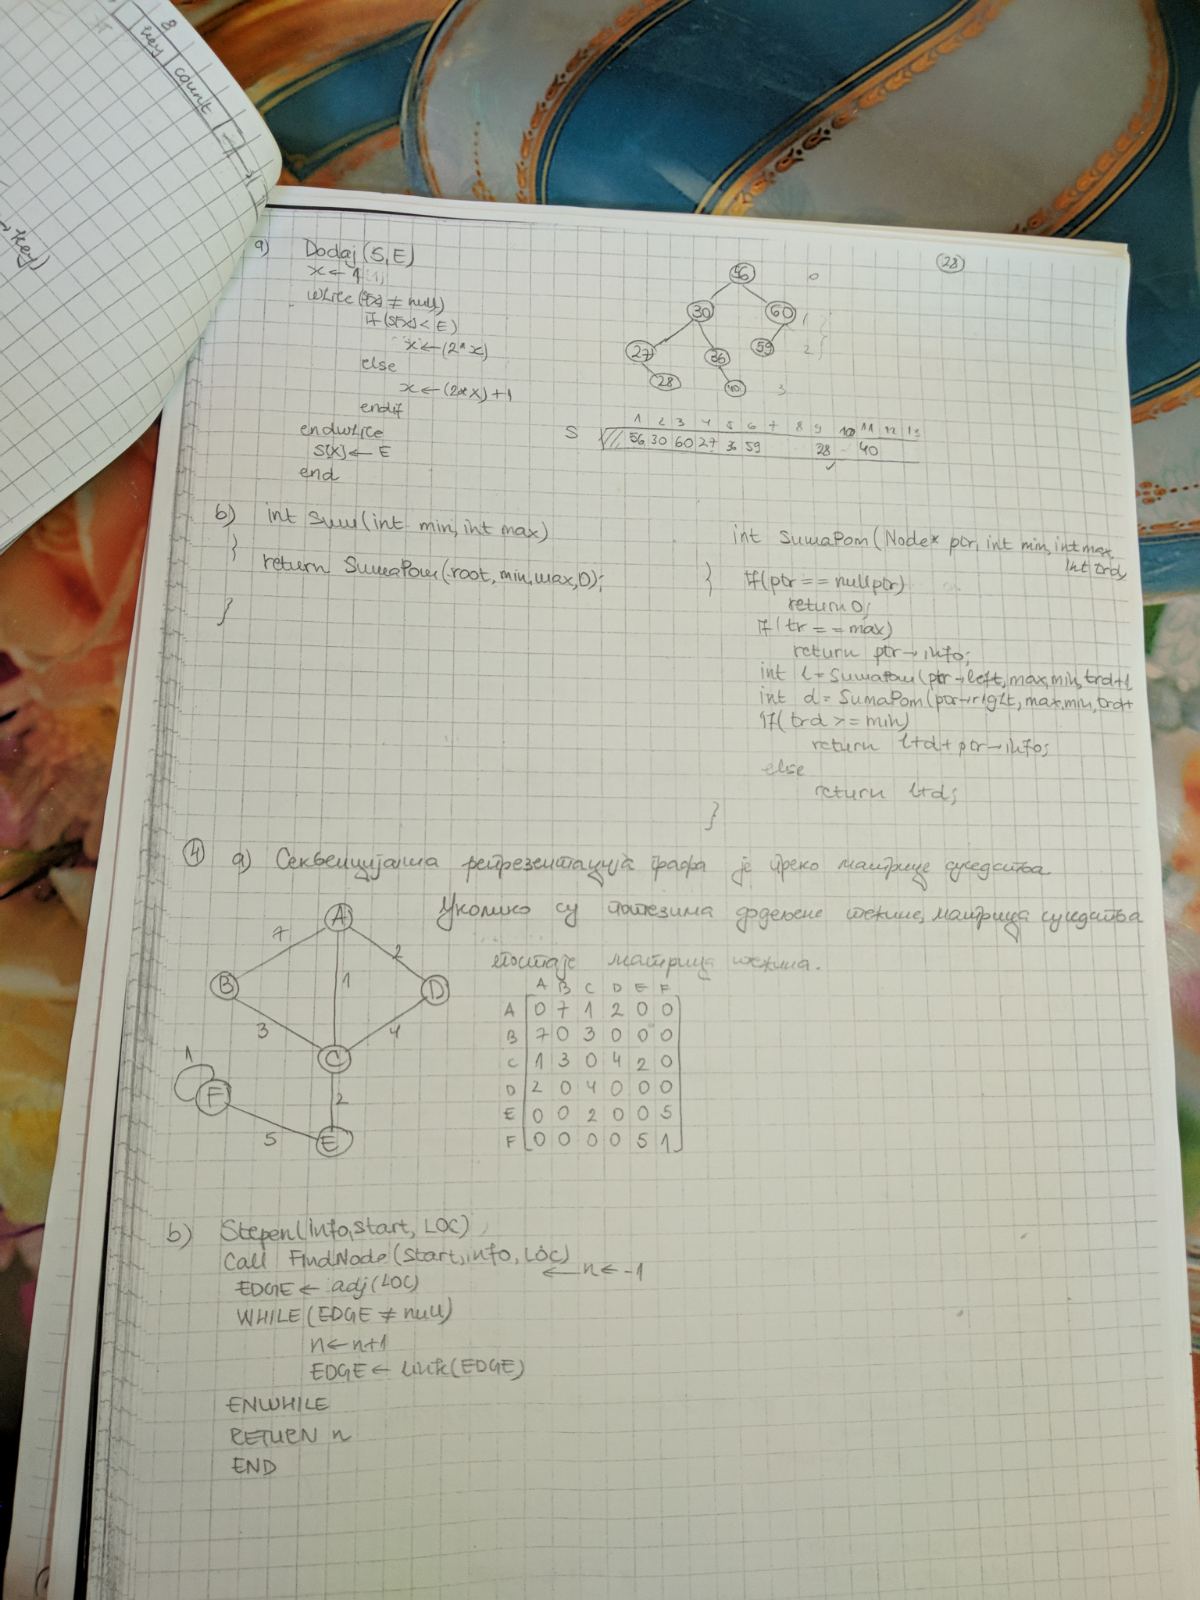 8
key count
→key)
a) Dodaj(S,E)
x ← 1
while (S[x] ≠ null)
if (S[x] < E)
x ← (2*x)
else
x ← (2*x)+1
endif
endwhile
S[x] ← E
end
28
56 0
30 60 1
27 36 59 2
28 40 3
1 2 3 4 5 6 7 8 9 10 11 12 13
S 56 30 60 27 36 59 28 40
b) int Sum(int min, int max)
{
return SumaPom(root, min, max, 0);
}
int SumaPom(Node* ptr, int min, int max,
int trd,
{ if(ptr == nullptr)
return 0;
if(tr == max)
return ptr→info;
int l = SumaPom(ptr→left, max, min, trd+1
int d = SumaPom(ptr→right, max, min, trd+
if(trd >= min)
return l+d+ptr→info;
else
return l+d;
}
4 a) Секвенцијална репрезентација графа је преко матрице суседства.
Уколико су потезима додељене тежине, матрица суседства
постаје матрица тежина.
A
7 2
B 1 D
3 4
C
1
F 2
5 E
A B C D E F
A 0 7 1 2 0 0
B 7 0 3 0 0 0
C 1 3 0 4 2 0
D 2 0 4 0 0 0
E 0 0 2 0 0 5
F 0 0 0 0 5 1
b) Stepen(info, start, LOC)
Call FindNode(start, info, LOC)
← n ← -1
EDGE ← adj(LOC)
WHILE (EDGE ≠ null)
n ← n+1
EDGE ← link(EDGE)
ENWHILE
RETURN n
END